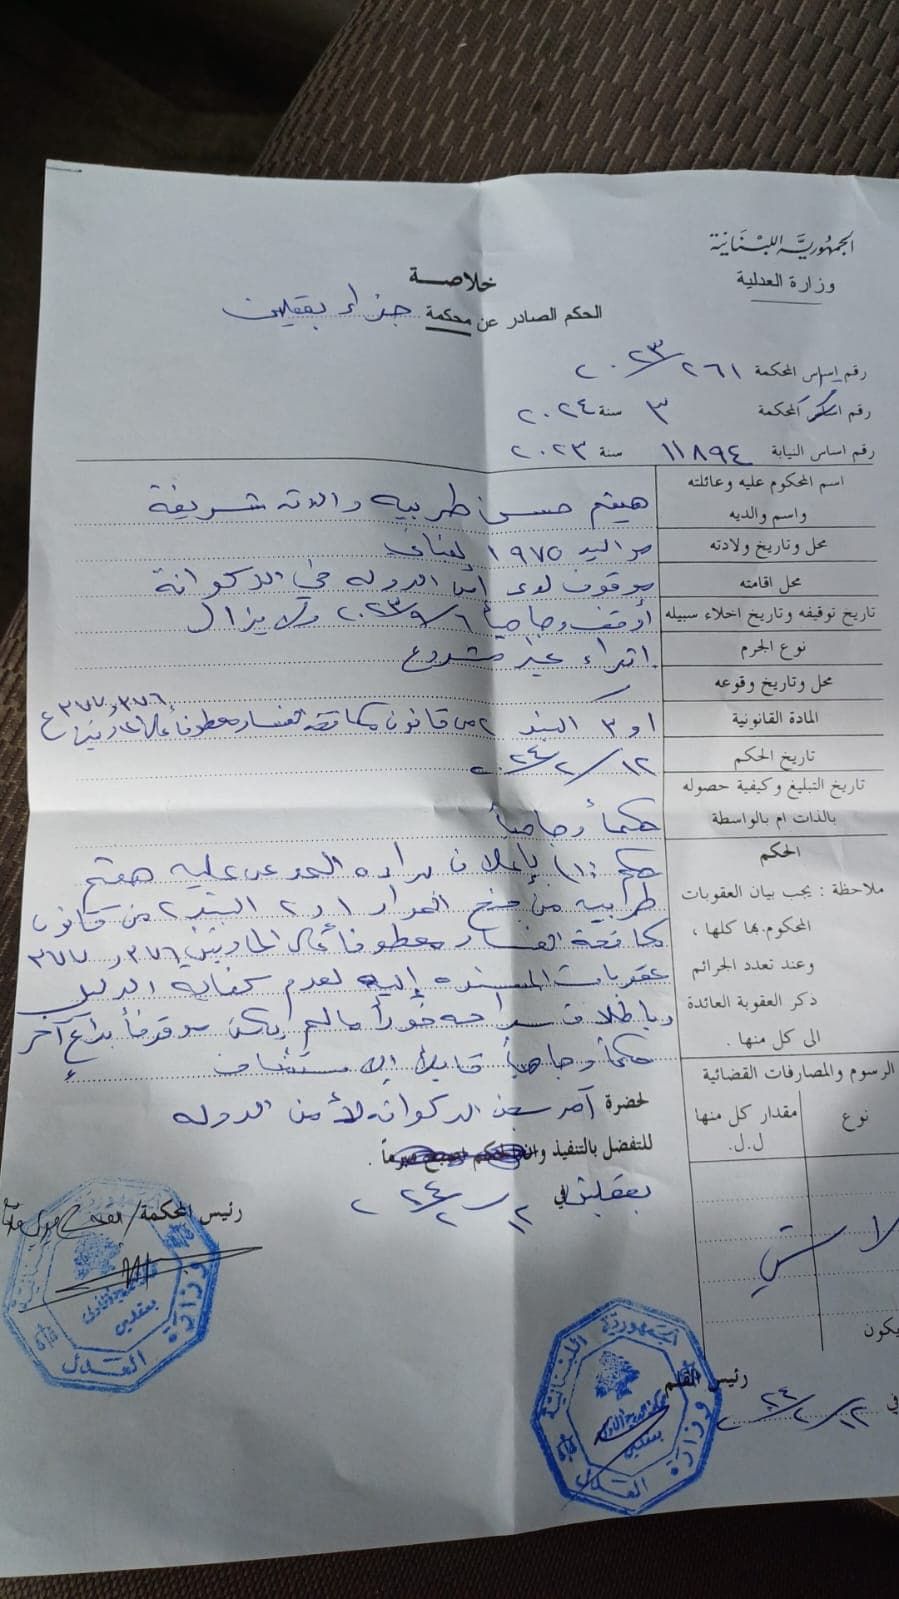 الجمهورية اللبنانية
وزارة العدلية
خلاصة
الحكم الصادر عن محكمة جزاء بعقلين
رقم اساس المحكمة ٢٦١/٢٠٢٣
رقم المحكمة ٣ سنة ٢٠٢٤
رقم اساس النيابة ١١٨٩٤ سنة ٢٠٢٣
اسم المحكوم عليه وعائلته
واسم والديه
هيثم حسن طربيه والدته شريفة
محل وتاريخ ولادته مواليد ١٩٧٥ لبنان
محل اقامته موقوف لدى أمن الدولة في الدكوانة
تاريخ توقيفه وتاريخ اخلاء سبيله أوقف وجاهياً ٦/٩/٢٠٢٣ ولا يزال
نوع الجرم اثراء غير مشروع
محل وتاريخ وقوعه
المادة القانونية ١ و٣ البند ٢ من قانون مكافحة الفساد معطوفة على المادتين ٣٧٦ و٣٧٧ ع
تاريخ الحكم ١٢/٢/٢٠٢٤
تاريخ التبليغ وكيفية حصوله
بالذات ام بالواسطة
حكماً وجاهياً
الحكم
حكم: ١) بإعلان براءة المدعى عليه هيثم
ملاحظة : يجب بيان العقوبات
طربيه من جنح المواد ١ و٢ البند ٢ من قانون
المحكوم بها كلها ،
مكافحة الفساد معطوفة على المادتين ٣٧٦ و ٣٧٧
وعند تعدد الجرائم
عقوبات المسندة إليه لعدم كفاية الدليل
ذكر العقوبة العائدة
وباطلاق سراحه فوراً ما لم يكن موقوفاً بداعٍ آخر
الى كل منها .
حكماً وجاهياً قابلاً للاستئناف
الرسوم والمصارفات القضائية
نوع
مقدار كل منها
ل.ل.
لا شيء
يكون
لحضرة آمر سجن الدكوانة لأمن الدولة
للتفضل بالتنفيذ
بعقلين في ١٢/٢/٢٠٢٤
رئيس المحكمة/
رئيس القلم
في ١٢/٢/٢٠٢٤
الجمهورية اللبنانية
وزارة العدل
بعقلين
وزارة العدل
بعقلين